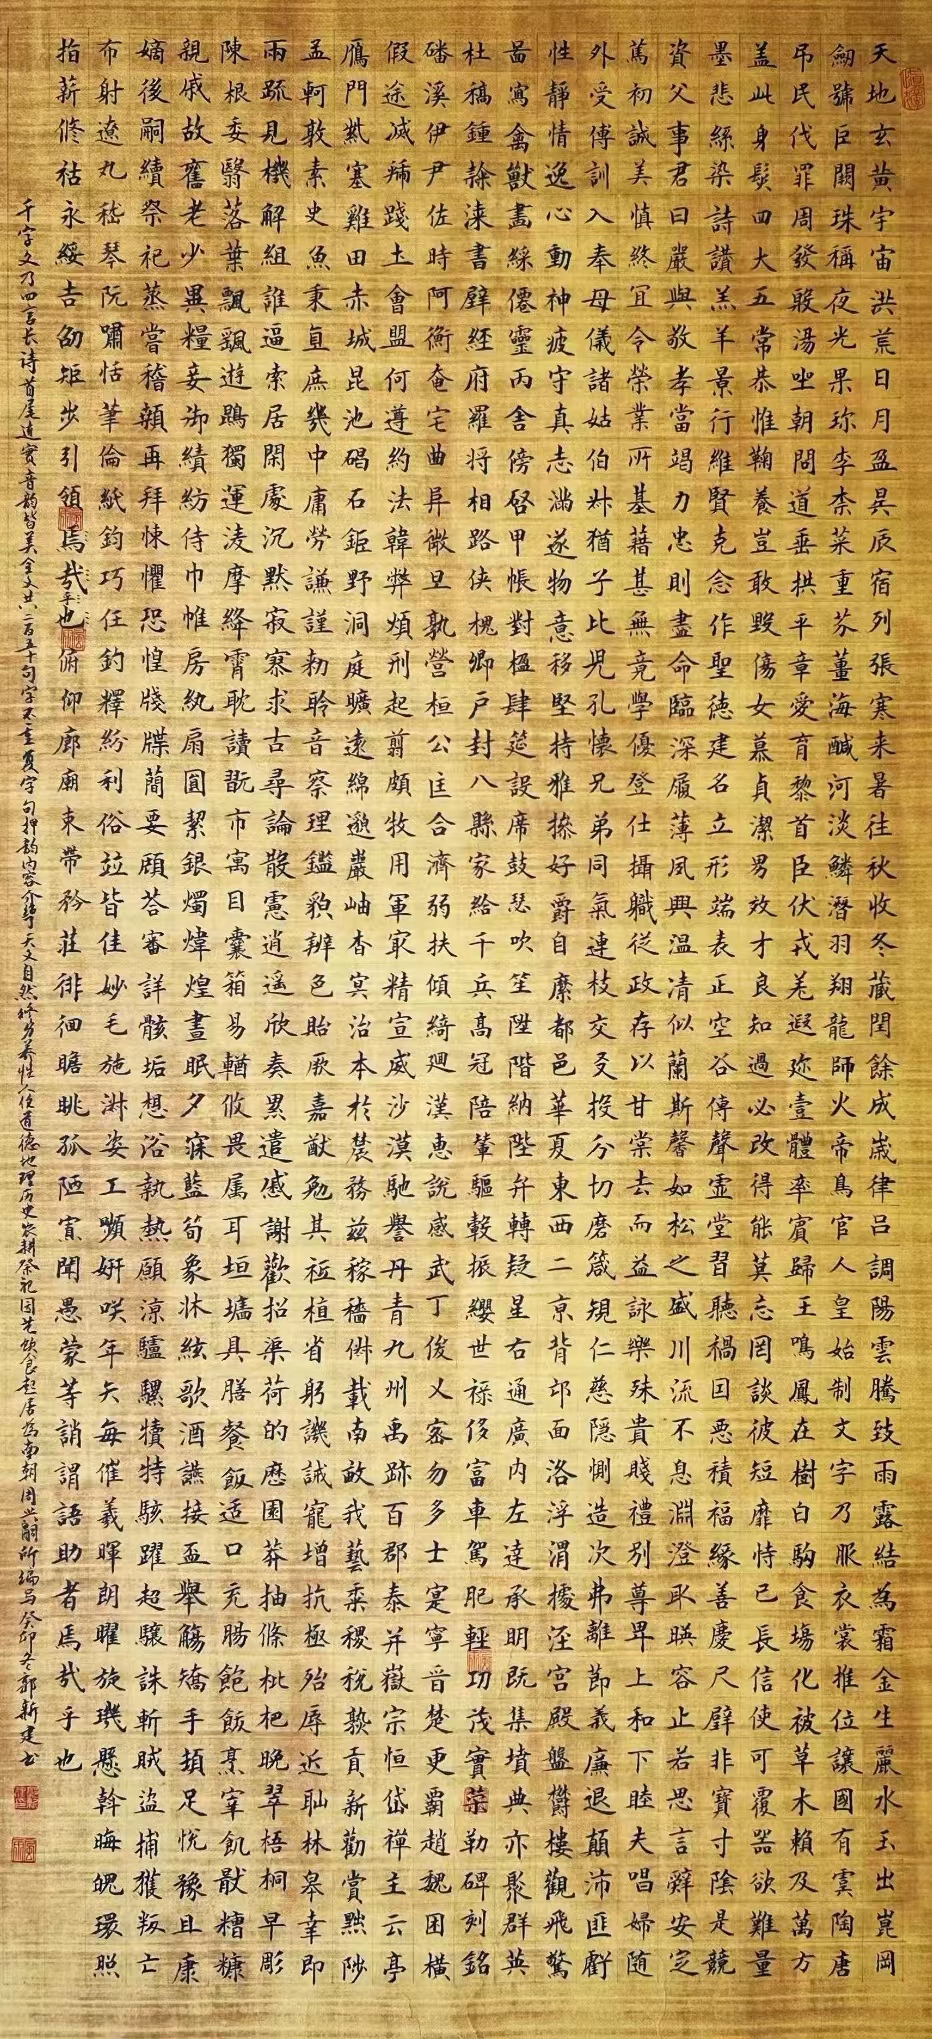 天地玄黃宇宙洪荒日月盈昃辰宿列張寒来暑往秋收冬藏閏餘成歲律呂調陽雲騰致雨露結為霜金生麗水玉出崑岡
劒號巨闕珠稱夜光果珍李柰菜重芥薑海鹹河淡鱗潛羽翔龍師火帝鳥官人皇始制文字乃服衣裳推位讓國有虞陶唐
吊民伐罪周發殷湯坐朝問道垂拱平章愛育黎首臣伏戎羌遐迩壹體率賓歸王鳴鳳在樹白駒食場化被草木賴及萬方
盖此身髮四大五常恭惟鞠養豈敢毀傷女慕貞潔男效才良知過必改得能莫忘罔談彼短靡恃己長信使可覆器欲難量
墨悲絲染詩讚羔羊景行維賢克念作聖德建名立形端表正空谷傳聲虛堂習聽禍因惡積福緣善慶尺璧非寶寸陰是競
資父事君曰嚴與敬孝當竭力忠則盡命臨深履薄夙興温凊似蘭斯馨如松之盛川流不息淵澄取暎容止若思言辭安定
篤初誠美慎終宜令榮業所基藉甚無竟學優登仕攝職從政存以甘棠去而益詠樂殊貴賤禮別尊卑上和下睦夫唱婦随
外受傅訓入奉母儀諸姑伯叔猶子比兒孔懷兄弟同氣連枝交友投分切磨箴規仁慈隱惻造次弗離節義廉退顛沛匪虧
性靜情逸心動神疲守真志滿逐物意移堅持雅操好爵自縻都邑華夏東西二京背邙面洛浮渭據涇宮殿盤鬱樓觀飛驚
啚寫禽獸畫綵僊靈丙舍傍啓甲帳對楹肆筵設席鼓瑟吹笙陞階納陛弁轉疑星右通廣内左達承明既集墳典亦聚群英
杜稿鍾隸漆書壁經府羅将相路侠槐卿戶封八縣家給千兵高冠陪輦驅轂振纓世祿侈富車駕肥輕功茂實策勒碑刻銘
磻溪伊尹佐時阿衡奄宅曲阜微旦孰營桓公匡合濟弱扶傾綺廻漢惠說感武丁俊乂密勿多士寔寧晉楚更覇趙魏困橫
假途滅虢踐土會盟何遵約法韓弊煩刑起剪頗牧用軍最精宣威沙漠馳譽丹青九州禹跡百郡秦并嶽宗恒岱禪主云亭
鴈門紫塞雞田赤城昆池碣石鉅野洞庭曠遠綿邈巖岫杳冥治本於農務兹稼穡俶載南畝我藝黍稷稅熟貢新勸賞黜陟
孟軻敦素史魚秉直庶幾中庸勞謙謹勑聆音察理鑑貌辨色貽厥嘉猷勉其祗植省躬譏誡寵增抗極殆辱近恥林皋幸即
兩疏見機解組誰逼索居閑處沉默寂寥求古尋論散慮逍遥欣奏累遣慼謝歡招渠荷的歷園莽抽條枇杷晚翠梧桐早彫
陳根委翳落葉飄颻遊鵾獨運凌摩絳霄耽讀翫市寓目囊箱易輶攸畏属耳垣墻具膳餐飯适口充腸飽飫烹宰飢猒糟糠
親戚故舊老少異糧妾御績紡侍巾帷房紈扇圓絜銀燭煒煌晝眠夕寐藍筍象牀絃歌酒讌接盃舉觴矯手頓足悅豫且康
嫡後嗣續祭祀蒸嘗稽顙再拜悚懼恐惶牋牒簡要顧荅審詳骸垢想浴執熱願涼驢騾犢特駭躍超驤誅斬賊盜捕獲叛亡
布射遼丸嵇琴阮嘯恬筆倫紙鈞巧任釣釋紛利俗竝皆佳妙毛施淑姿工嚬妍咲年矢每催羲暉朗曜旋璣懸斡晦魄環照
指薪修祜永綏吉劭矩步引領焉哉乎也俯仰廊廟束帶矜莊徘徊瞻眺孤陋寡聞愚蒙等誚謂語助者焉哉乎也
千字文乃四言长诗首尾连贯音韵皆美全文共二百五十句字不重复字句押韵内容介绍了天文自然修身养性人伦道德地理历史农耕祭祀园艺饮食起居为南朝周兴嗣所编写癸卯冬郭新建书